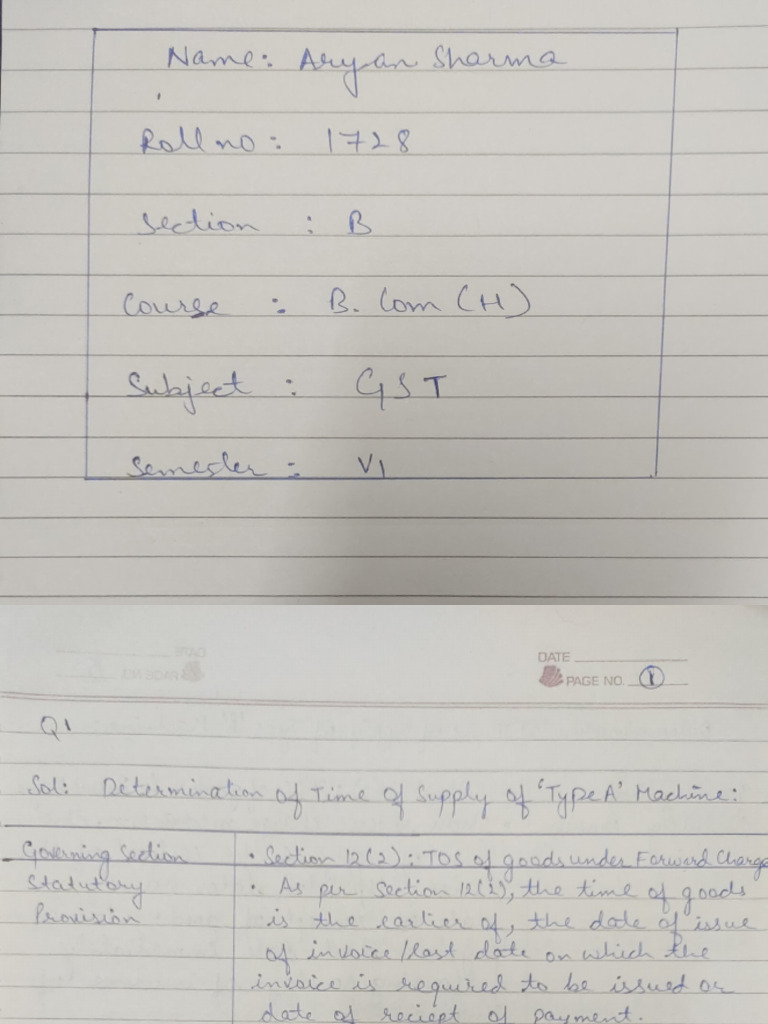 Name: Aryan Sharma
Roll no: 1728
Section : B
Course : B. Com (H)
Subject : GST
Semester : VI
DATE
PAGE NO. 1
Q1
Sol: Determination of Time of Supply of 'Type A' Machine:
Governing Section • Section 12(2): TOS of goods under Forward Charge
Statutory • As per section 12(2), the time of goods
Provision is the earlier of, the date of issue
of invoice/last date on which the
invoice is required to be issued or
date of reciept of payment.